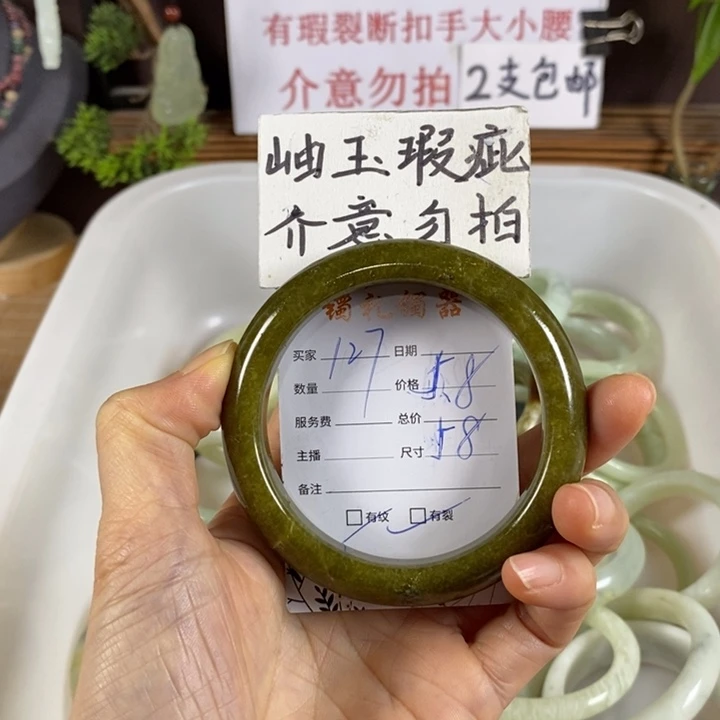 有瑕裂断扣手大小腰
介意勿拍 2支包邮
岫玉瑕疵
介意勿拍
买家 127 日期
数量 价格 58
服务费 总价
主播 尺寸 58
备注
□有纹 □有裂